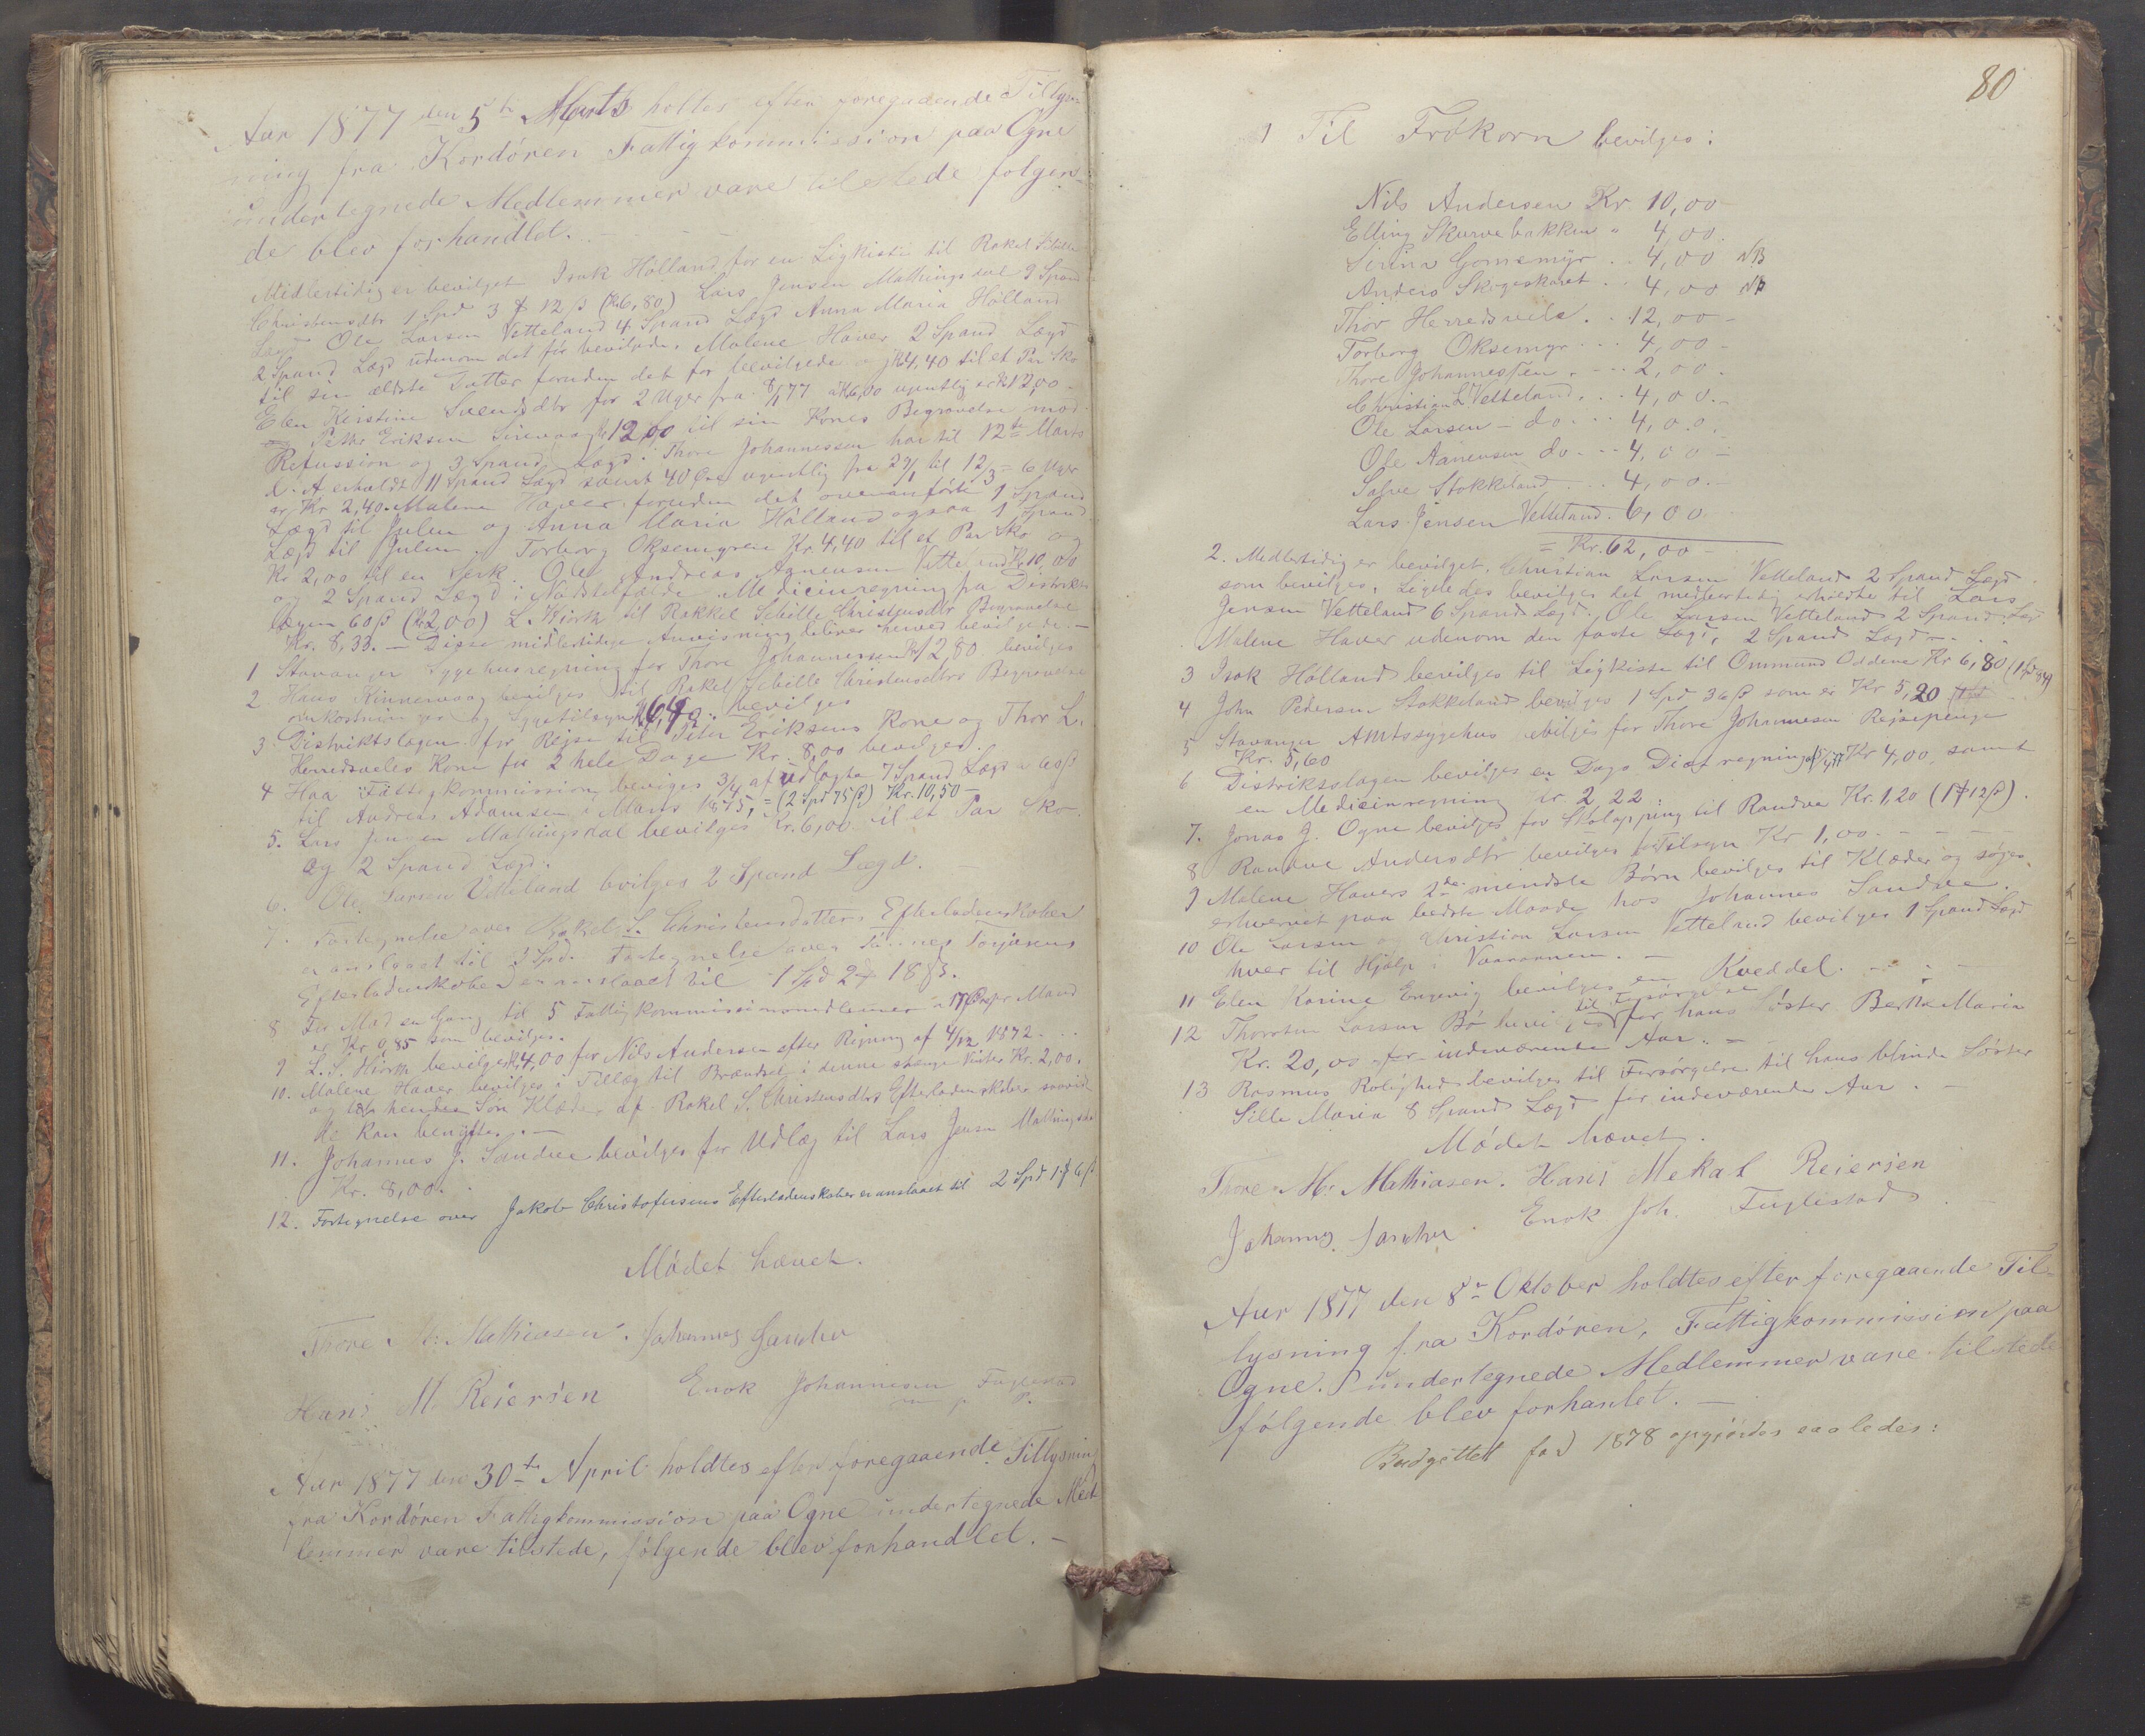 Aar 1877 den 5te Marts holtes efter foregaaende Tillys-
ning fra Kordören Fattigkommission paa Ogne
undertegnede Medlemmer vare tilstede folgen-
de blev forhandlet. -
Midlertidig er bevilget Isak Hölland for en Ligkiste til Rakel Sibille
Christensdtr 1 Spd 3 ₰ 12 β (Kr 6,80) Lars Jensen Mathingsdal 9 Spand
Lægd Ole Larsen Vetteland 4 Spand Lægd Anna Maria Hölland
2 Spand Lægd udenom det för bevilgede. Malene Haver 2 Spand Lægd
til sin ældste Datter foruden det for bevilgede og Kr 4,40 til et Par Sko
Elen Kirstine Svendsdtr for 2 Uger fra 8/1 77 a Kr 6,00 ugentlig er Kr 12,00 -
Peder Eriksen Sirevaag Kr 12,00 til sin Kones Begravelse mod
Refussion og 3 Spand Lægd. Thore Johannessen har til 12te Marts
d. A. erholdt 11 Spand Lægd samt 40 Øre ugentlig fra 29/1 til 12/3 = 6 Uger
er Kr 2,40. Malene Haver foruden det ovenanförte 1 Spand
Lægd til Julen og Anna Maria Hölland ogsaa 1 Spand
Lægd til Julen. Torborg Oksemyren Kr. 4,40 til et Par Sko og
Kr 2,00 til en Serk. Ole Andreas Aanensen Vetteland Kr 10,00
og 2 Spand Lægd i Nödstilfælde. Medicinregning fra Distrikts
lægen 60 β (Kr 2,00) L. Hiorth til Rakkel Sibille Christensdtr Begravelse
Kr. 8,33. - Disse midlertidige Anvisning bliver herved bevilgede. -
1 Stavanger Sygehusregning for Thore Johannessen Kr 12,80 bevilges
2 Hans Kinnervaag bevilges til Rakel Sibille Christensdtrs Begravelse
omkostninger og Sygetilsyn Kr 6,40. bevilges
3 Distriktslægen for Rejse til Peter Eriksens Kone og Thor L.
Herredsveles Kone for 2 hele Dage Kr. 8,00 bevilges.
4 Haa Fattigkommission beviges 3/4 af udlagte 7 Spand Lægd a 60 β
til Andreas Adamsen i Marts 1875, = (2 Spd 75 β) Kr. 10,50 -
5. Lars Jensen Mathingsdal bevilges Kr. 6,00 til et Par Sko
og 2 Spand Lægd.
6. Ole Larsen Vetteland bvilges 2 Spand Lægd.
7. Fortegnelse over Rakel S. Christensdatters Efterladenskaber
er anslaaet til 3 Spd. Fortegnelse over Tönnes Torjusens
Efterladenskaber er anslaaet til 1 Spd 2 ₰ 18 β.
8 For Mad en Gang til 5 Fattigkommissionsmedlemmer a 17 Öre pr Mand
er Kr 0,85 som bevilges.
9 L. S. Hiorth bevilges Kr 4,00 for Nils Andersen efter Rigning af 4/12 1872. ..
10. Malene Haver bevilges i Tillæg til Brændsel i denne strenge Vinter Kr. 2,00.
og til hendes Sön Klæder af Rakel S. Christensdtrs Efterladenskaber saavid
de kan benyttes. -
11. Johannes J. Sandve bevilges for Udlæg til Lars Jensen Mathingsdal
Kr. 8,00.
12. Fortegnelse over Jakob Christofersens Efterladenskaber er anslaaet til 2 Spd 1 ₰ 6 β
Mödet hævet.
Thore M: Mathiasen. Johannes Sandve
Hans M. Reiersen Enok Johannesen Fuglestad
Aar 1877 den 30te April holdtes efter foregaaende Tillysning
fra Kordören Fattigkommission paa Ogne undertegnede Med
lemmer vare tilstede, følgende blev forhandlet. -
80
1 Til Frökorn bevilges:
Nils Andersen Kr. 10,00
Elling Skurvebakken " 4,00.
Sirina Gomsmyr .. 4,00 NB
Anders Skogeskaret .. 4,00 NB
Thor Herredsvele. .. 12,00 -
Torborg Oksemyr ... 4,00 -
Thore Johannessen. ... 2,00 -
Christian L Vetteland. .. 4,00. -
Ole Larsen - do ... 4,00. -
Ole Aanensen do ... 4,00 -
Salve Stokkeland ... 4,00. -
Lars Jensen Vetteland. 6,00
= Kr. 62,00 -
2. Medlertidig er bevilget. Christian Larsen Vetteland 2 Spand Lægd
som bevilges. Ligeledes bevilges det medlertidig erholdte til Lars
Jensen Vetteland 6 Spand Lægd. Ole Larsen Vetteland 2 Spand Lægd
Malene Haver udenom den faste Lægd, 2 Spand Lægd -
3 Isak Hölland bevilges til Ligkiste til Ommund Oddene Kr 6,80 (1 Spd 84 β)
4 John Pedersen Stokkeland bevilges 1 Spd 36 β som er Kr 5,20
5 Stavanger Amtssygehus bevilges for Thore Johannesen Rejsepenge
Kr. 5,60
6 Distriktslægen bevilges en Dags Diætregning Kr 4,00 samt
en Medicinregning Kr 2,22.
7. Jonas J. Ogne bevilges for Skolapping til Randve Kr. 1,20 (1 ₰ 12 β).
8 Randve Andersdtr bevilges for Tilsyn Kr 1,00. - - - -
9 Malene Havers 2de mindste Börn bevilges til Klæder og söges
erhvervet paa bedste Maade hos Johannes Sandve.
10 Ole Larsen og Christian Larsen Vetteland bevilges 1 Spand Lægd
hver til Hjælp i Vaaronnen. -
11 Elen Karine Engevig bevilges en Kveddel. - - - -
12 Thorsten Larsen Bö bevilges til Forsörgelse for hans Söster Berthe Maria
Kr. 20,00 for indeværende Aar. -
13 Rasmus Rolighed bevilges til Forsörgelse til hans blinde Söster
Sille Maria 8 Spand Lægd for indeværende Aar. -
Mödet hævet.
Thore M: Mathiasen. Hans Mekal Reiersen
Johannes Sandve. Enok Joh. Fuglestad
Aar 1877 den 8de Oktober holdtes efter foregaaende Til-
lysning fra Kordören, Fattigkommission paa
Ogne. undertegnede Medlemmer vare tilstede
følgende blev forhantlet. -
Budgettet for 1878 opgjördes saaledes: